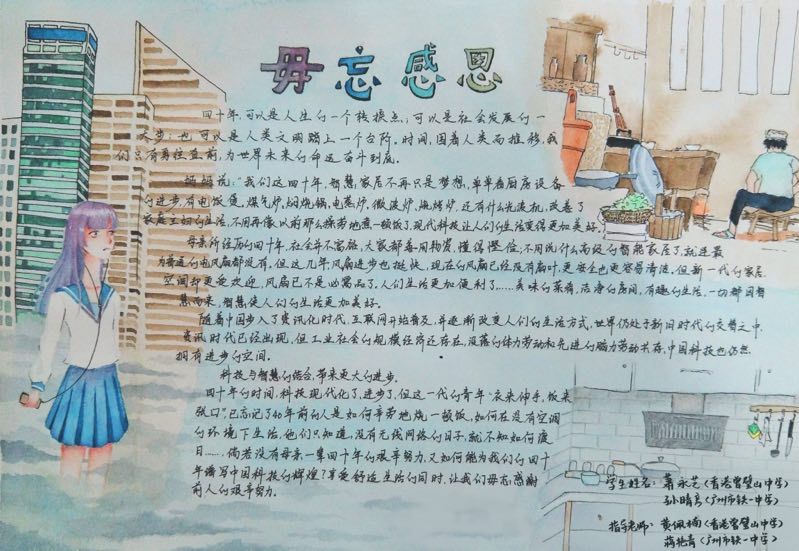 毋忘感恩
四十年,可以是人生的一个转捩点;可以是社会发展的一
大步;也可以是人类文明踏上一个台阶。时间,因着人类而推移,我
们只有勇往直前,为世界未来的命运奋斗到底。
妈妈说:“我们这四十年,智慧家居不再只是梦想,单单看厨房设备
的进步,有电饭煲,煤气炉,焖烧锅,电蒸炉,微波炉,烧烤炉,还有什么光波机,改善了
家庭主妇的生活,不用再像以前那么操劳地煮一顿饭了;现代科技让人们的生活变得更加美好。”
母亲所经历的四十年,社会并不富裕,大家都善用物资懂得悭俭,不用说什么高级的智能家居了,就连最
为普通的电风扇都没有。但这几年,风扇进步也挺快,现在的风扇已经没有扇叶,更安全也更容易清洁。但新一代的家居,
空调却更受欢迎,风扇已不是必需品了,人们生活更加便利了……美味的菜肴,洁净的房间,有趣的生活,一切都因智
慧而来,智慧使人们的生活更加美好。
随着中国步入了资讯化时代,互联网开始普及,并逐渐改变人们的生活方式,世界仍处于新旧时代的交替之中,
资讯时代已经出现,但工业社会的规模经济还存在,没落的体力劳动和先进的脑力劳动书存,中国科技也仍然
拥有进步的空间。
科技与智慧的结合,带来更大的进步。
四十年的时间,科技现代化了,进步了,但这一代的青年“衣来伸手,饭来
张口”,已忘记了40年前的人是如何辛劳地烧一顿饭,如何在没有空调
的环境下生活,他们只知道,没有无线网络的日子,就不知如何度
日……,倘若没有母亲一辈四十年的艰辛努力,又如何能为我们的四十
年谱写中国科技的辉煌?享受舒适生活的同时,让我们毋忘感谢
前人的艰辛努力。
学生姓名:萧永芝(香港曾璧山中学)
孙晴(广州市铁一中学)
指导老师:黄佩楠(香港曾璧山中学)
蒋艳青(广州市铁一中学)